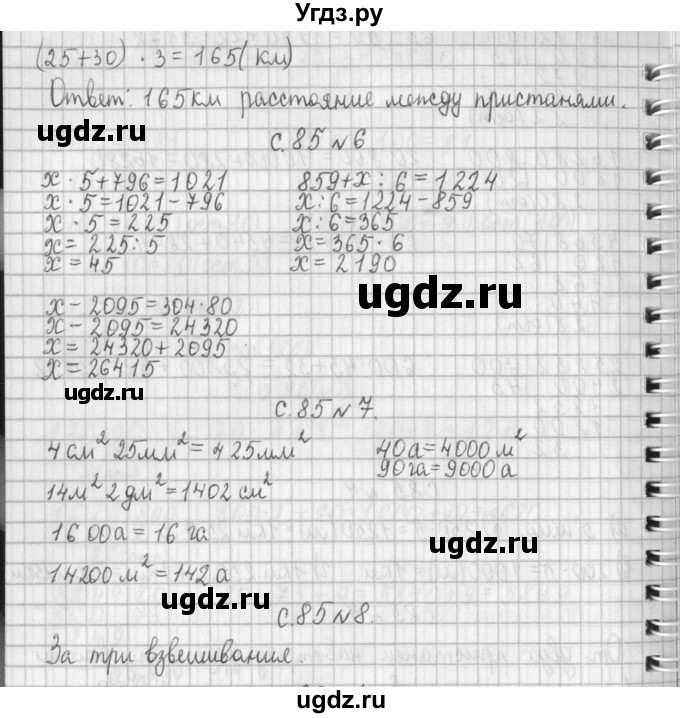 Угдз.ру
(25+30) · 3 = 165 (км)
Ответ: 165 км расстояние между пристанями.
ugdz.ru
с. 85 № 6
x · 5 + 796 = 1021
x · 5 = 1021 - 796
x · 5 = 225
x = 225 : 5
x = 45
859 + x : 6 = 1224
x : 6 = 1224 - 859
x : 6 = 365
x = 365 · 6
x = 2190
ugdz.ru
x - 2095 = 304 · 80
x - 2095 = 24320
x = 24320 + 2095
x = 26415
ugdz.ru
с. 85 № 7.
4 см² 25 мм² = 425 мм²
14 м² 2 дм² = 1402 см²
1600 а = 16 га
14200 м² = 142 а
40 а = 4000 м²
90 га = 9000 а
ugdz.ru
ugdz.ru
с. 85 № 8.
За три взвешивания.
ugdz.ru
ugdz.ru